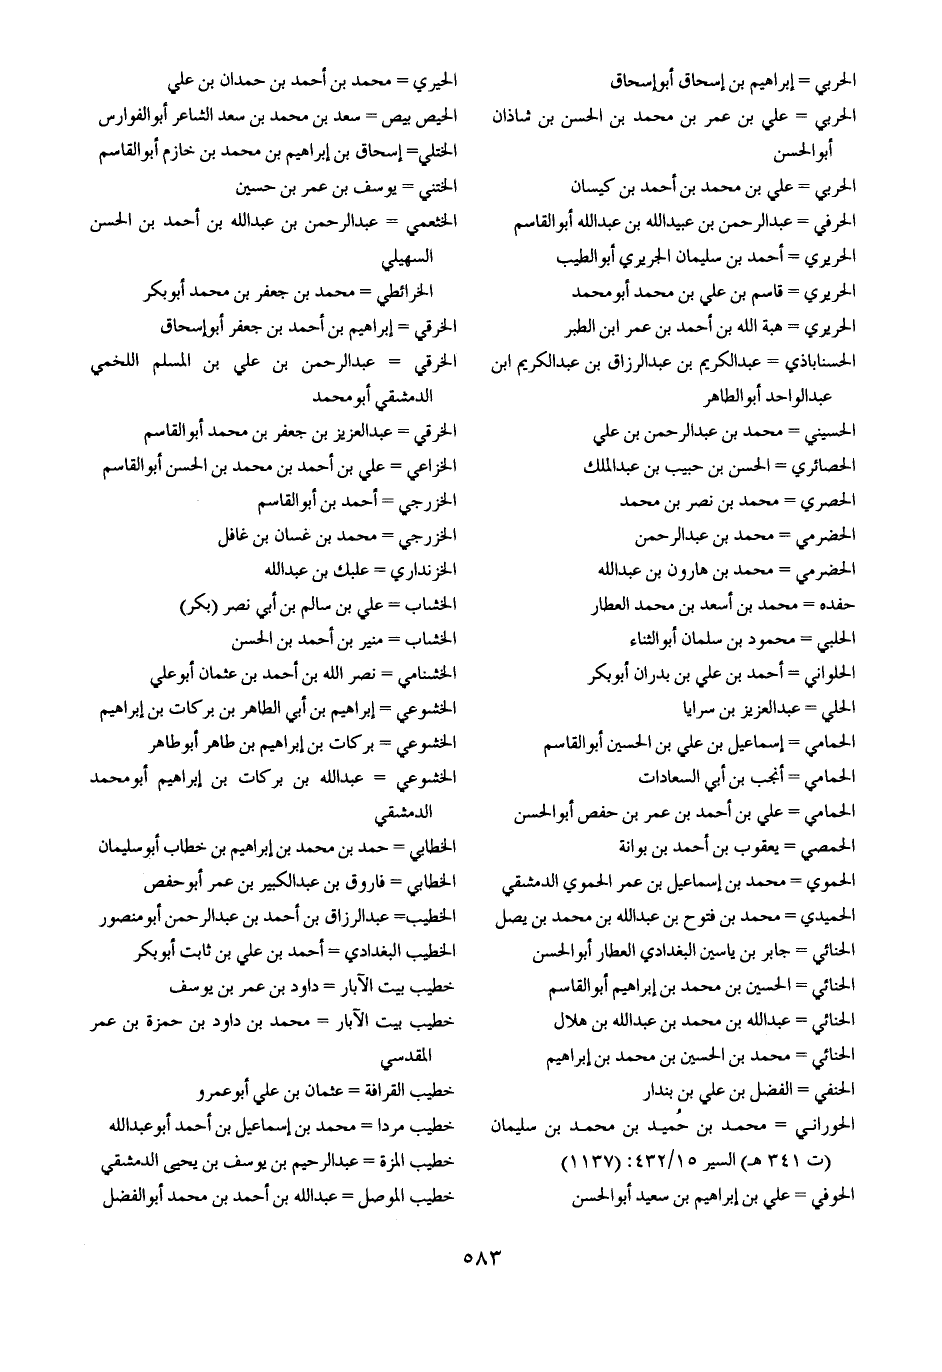 الحربي = إبراهيم بن إسحاق أبوإسحاق
الحربي = علي بن عمر بن محمد بن الحسن بن شاذان
أبوالحسن
الحربي = علي بن محمد بن أحمد بن كيسان
الحرفي = عبدالرحمن بن عبيدالله بن عبدالله أبوالقاسم
الحريري = أحمد بن سليمان الجريري أبوالطيب
الحريري = قاسم بن علي بن محمد أبومحمد
الحريري = هبة الله بن أحمد بن عمر ابن الطبر
الحسناباذي = عبدالكريم بن عبدالرزاق بن عبدالكريم ابن
عبدالواحد أبوالطاهر
الحسيني = محمد بن عبدالرحمن بن علي
الحصائري = الحسن بن حبيب بن عبدالملك
الحصري = محمد بن نصر بن محمد
الحضرمي = محمد بن عبدالرحمن
الحضرمي = محمد بن هارون بن عبدالله
حفده = محمد بن أسعد بن محمد العطار
الحلبي = محمود بن سلمان أبوالثناء
الحلواني = أحمد بن علي بن بدران أبوبكر
الحلي = عبدالعزيز بن سرايا
الحمامي = إسماعيل بن علي بن الحسين أبوالقاسم
الحمامي = أنجب بن أبي السعادات
الحمامي = علي بن أحمد بن عمر بن حفص أبوالحسن
الحمصي = يعقوب بن أحمد بن بوانة
الحموي = محمد بن إسماعيل بن عمر الحموي الدمشقي
الحميدي = محمد بن فتوح بن عبدالله بن محمد بن يصل
الحنائي = جابر بن ياسين البغدادي العطار أبوالحسن
الحنائي = الحسين بن محمد بن إبراهيم أبوالقاسم
الحنائي = عبدالله بن محمد بن عبدالله بن هلال
الحنائي = محمد بن الحسين بن محمد بن إبراهيم
الحنفي = الفضل بن علي بن بندار
الحوراني = محمد بن حُميد بن محمد بن سليمان
(ت ٣٤١ هـ) السير ٤٣٢/١٥: (١١٣٧)
الحوفي = علي بن إبراهيم بن سعيد أبوالحسن
الحيري = محمد بن أحمد بن حمدان بن علي
الحيص بيص = سعد بن محمد بن سعد الشاعر أبوالفوارس
الختلي= إسحاق بن إبراهيم بن محمد بن خازم أبوالقاسم
الختني = يوسف بن عمر بن حسين
الخثعمي = عبدالرحمن بن عبدالله بن أحمد بن الحسن
السهيلي
الخرائطي = محمد بن جعفر بن محمد أبوبكر
الخرقي = إبراهيم بن أحمد بن جعفر أبوإسحاق
الخرقي = عبدالرحمن بن علي بن المسلم اللخمي
الدمشقي أبومحمد
الخرقي = عبدالعزيز بن جعفر بن محمد أبوالقاسم
الخزاعي = علي بن أحمد بن محمد بن الحسن أبوالقاسم
الخزرجي = أحمد بن أبوالقاسم
الخزرجي = محمد بن غسان بن غافل
الخزنداري = علبك بن عبدالله
الخشاب = علي بن سالم بن أبي نصر (بكر)
الخشاب = منير بن أحمد بن الحسن
الخشنامي = نصر الله بن أحمد بن عثمان أبوعلي
الخشوعي = إبراهيم بن أبي الطاهر بن بركات بن إبراهيم
الخشوعي = بركات بن إبراهيم بن طاهر أبوطاهر
الخشوعي = عبدالله بن بركات بن إبراهيم أبومحمد
الدمشقي
الخطابي = حمد بن محمد بن إبراهيم بن خطاب أبوسليمان
الخطابي = فاروق بن عبدالكبير بن عمر أبوحفص
الخطيب= عبدالرزاق بن أحمد بن عبدالرحمن أبومنصور
الخطيب البغدادي = أحمد بن علي بن ثابت أبوبكر
خطيب بيت الآبار = داود بن عمر بن يوسف
خطيب بيت الآبار = محمد بن داود بن حمزة بن عمر
المقدسي
خطيب القرافة = عثمان بن علي أبوعمرو
خطيب مردا = محمد بن إسماعيل بن أحمد أبوعبدالله
خطيب المزة = عبدالرحيم بن يوسف بن يحيى الدمشقي
خطيب الموصل = عبدالله بن أحمد بن محمد أبوالفضل
٥٨٣